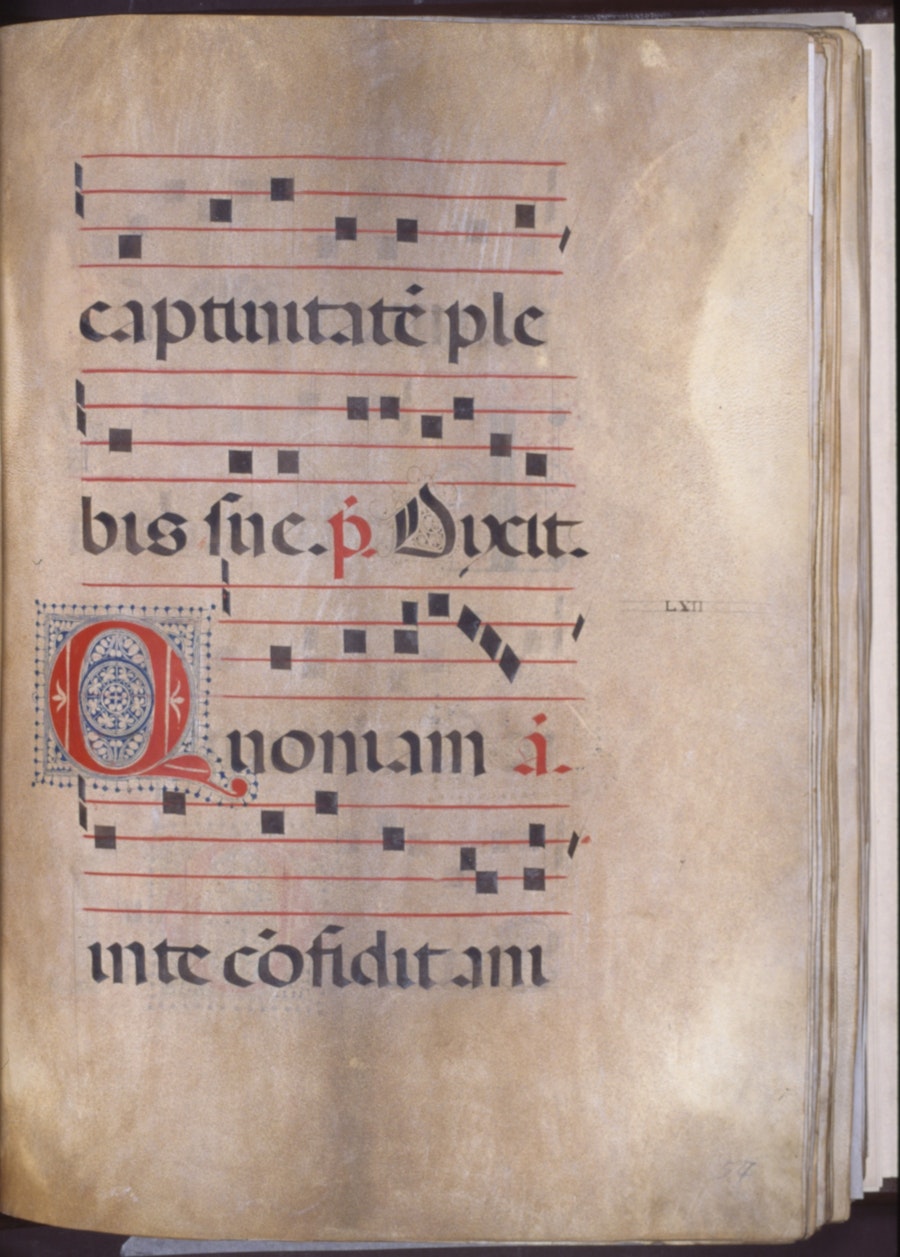 captiuitatē ple
bis sue. p̄. Dixit.
LXII
Quoniam ā.
inte cōfidit ani
57